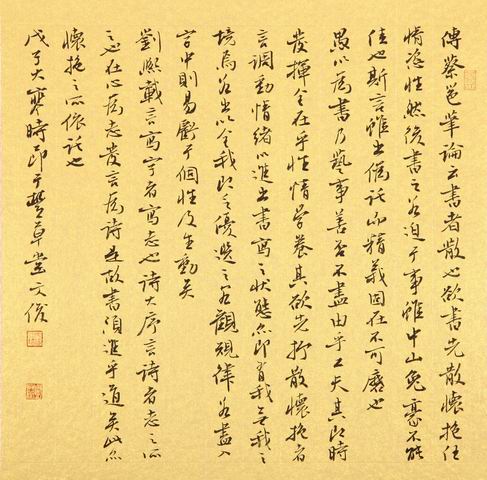 傳蔡邕筆論云書者散也欲書先散懷抱任
情恣性然後書之若迫于事雖中山兔毫不能
佳也斯言雖出僞託而精義固在不可磨也
愚以爲書乃藝事善否不盡由乎工夫其即時
發揮全在乎性情學養其欲先抒散懷抱者
言調動情緒以進出書寫之狀態亦即有我無我之
境焉若出以全我即之優選之客觀規律若盡入
字中則易虧于個性及生動矣
劉熙載言寫字者寫志也詩大序言詩者志之所
之也在心爲志發言爲詩是故書須進乎道矣此亦
懷抱之所依託也
戊子大寒時節于豐草堂文俊